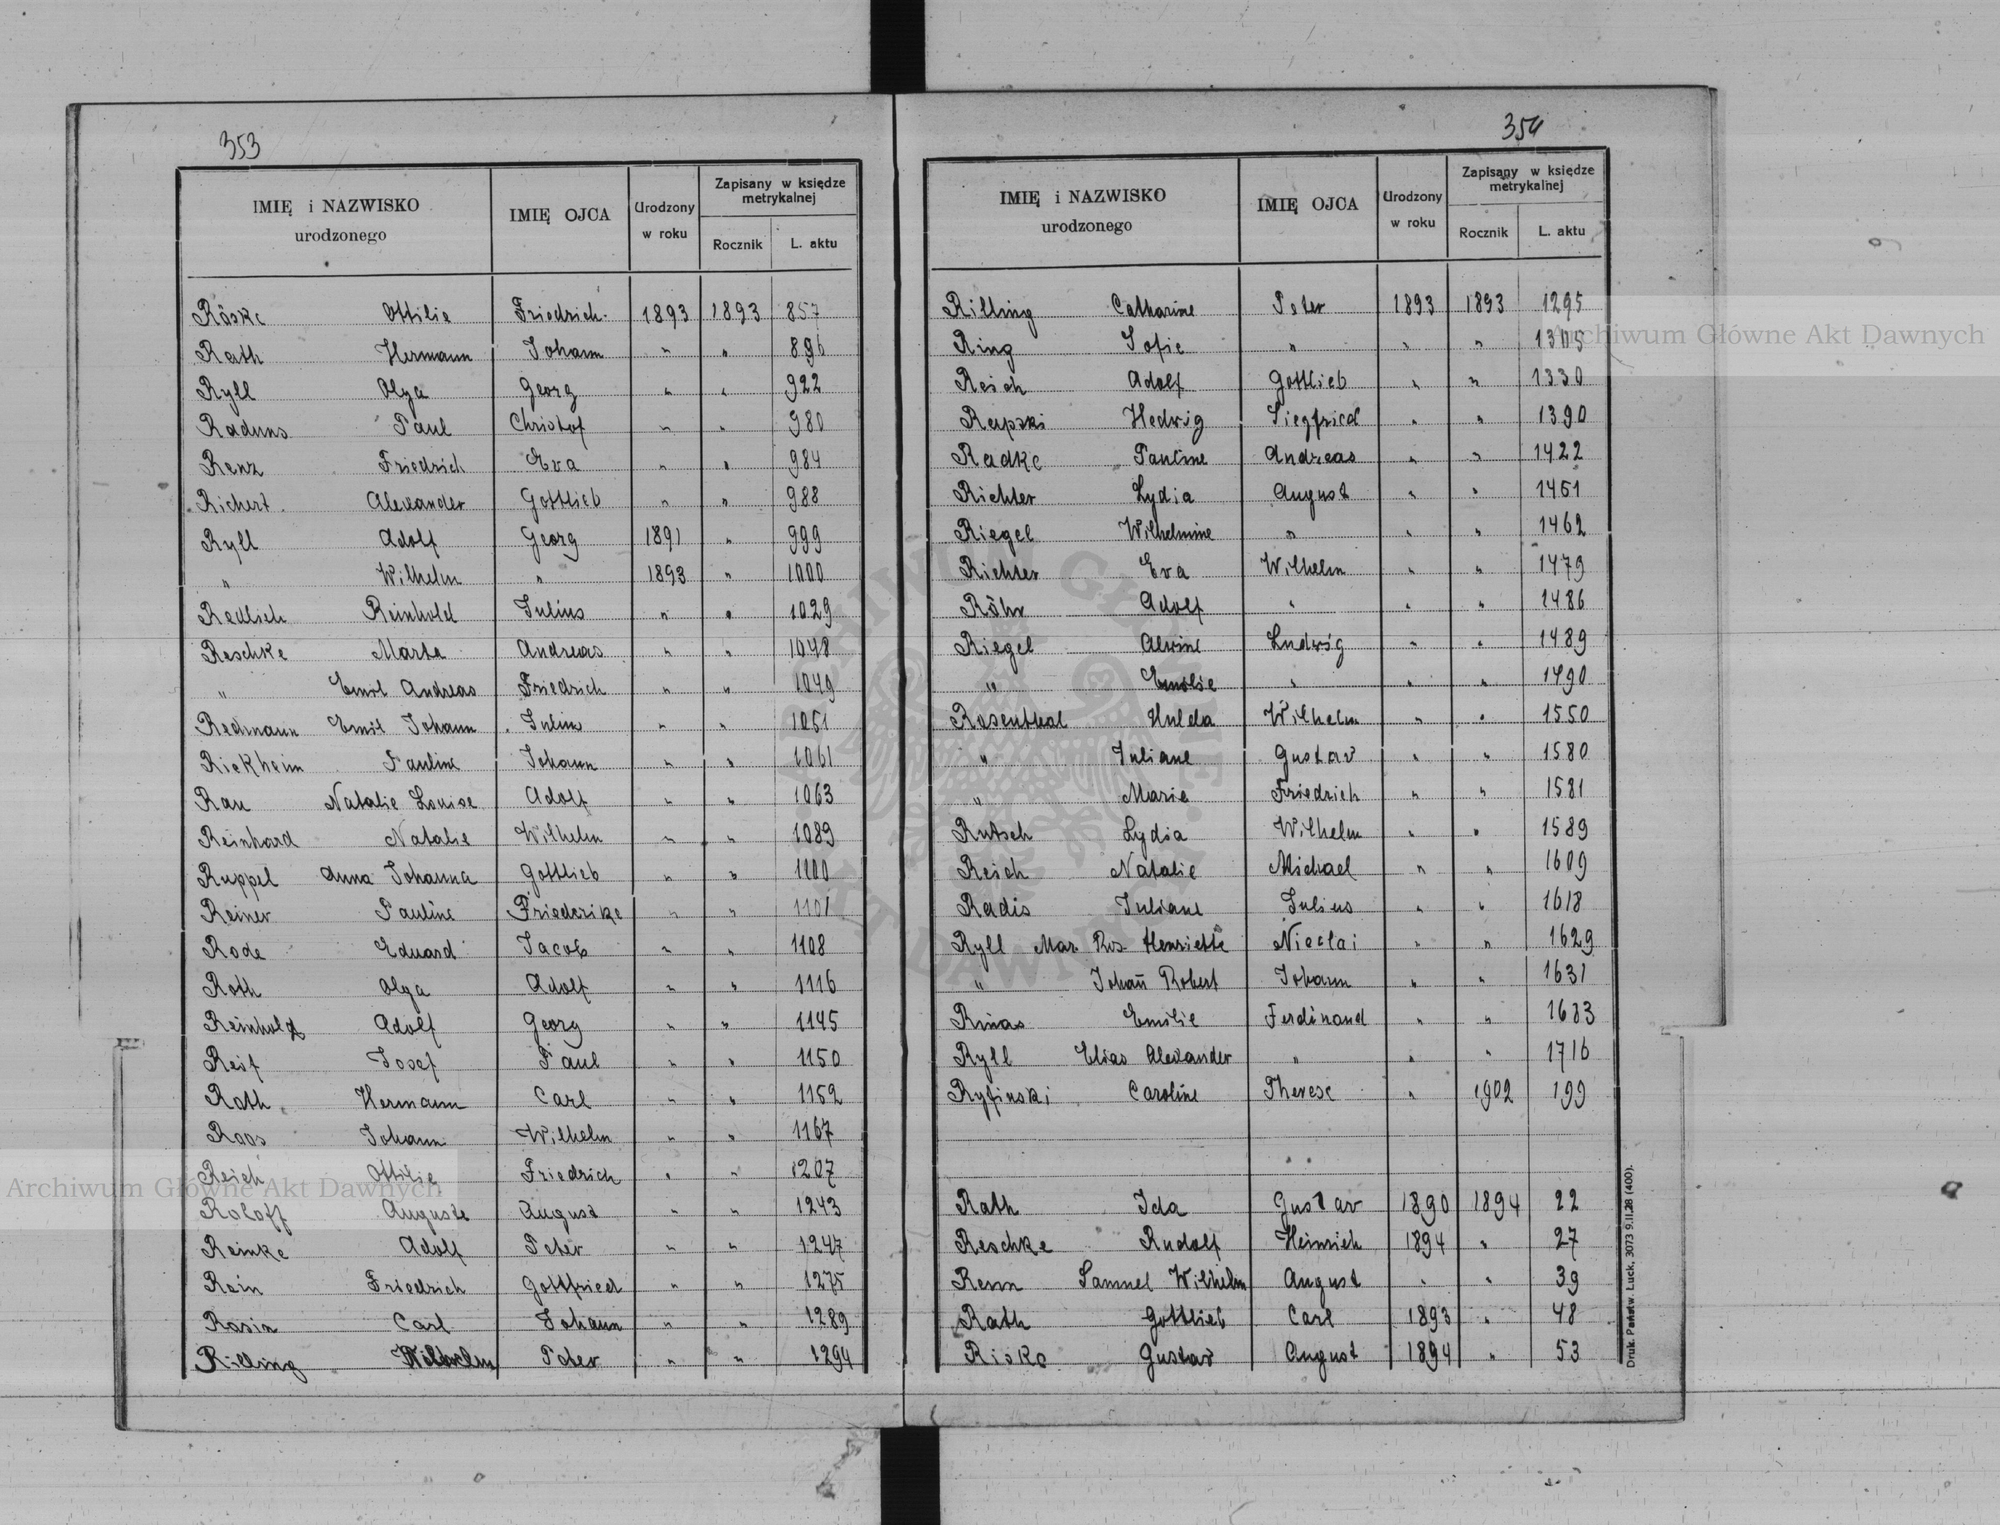 353
IMIĘ i NAZWISKO urodzonego IMIĘ OJCA Urodzony w roku Zapisany w księdze metrykalnej Rocznik L. aktu
Röske Ottilie Friedrich 1893 1893 857
Rath Hermann Johann " " 896
Ryll Olga Georg " " 922
Raduns Paul Christof " " 980
Renz Friedrich Eva " " 984
Richert Alexander Gottlieb " " 988
Ryll Adolf Georg 1891 " 999
" Wilhelm " 1893 " 1000
Redlich Reinhold Julius " " 1029
Reschke Marta Andreas " " 1048
" Emil Andreas Friedrich " " 1049
Redmann Emil Johann " " 1051
Riekheim Pauline Johann " " 1061
Rau Natalie Louise Adolf " " 1063
Reinhard Natalie Wilhelm " " 1089
Ruppel Anna Johanna Gottlieb " " 1100
Reiner Pauline Friederike " " 1101
Rode Eduard Jacob " " 1108
Roth Olga Adolf " " 1116
Reinhold Adolf Georg " " 1145
Reif Josef Paul " " 1150
Rath Hermann Carl " " 1152
Roos Johann Wilhelm " " 1167
Reich Ottilie Friedrich " " 1207
Roloff Auguste August " " 1243
Reinke Adolf Peter " " 1247
Rein Friedrich Gottfried " " 1275
Rosin Carl Johann " " 1289
Rilling Wilhelm Peter " " 1294
354
IMIĘ i NAZWISKO urodzonego IMIĘ OJCA Urodzony w roku Zapisany w księdze metrykalnej Rocznik L. aktu
Rilling Catharine Peter 1893 1893 1295
Ring Sofie " " " 1305
Reich Adolf Gottlieb " " 1330
Rupski Hedwig Siegfried " " 1390
Radke Pauline Andreas " " 1422
Richter Lydia August " " 1451
Riegel Wilhelmine " " " 1462
Richter Eva Wilhelm " " 1479
Röhr Adolf " " " 1486
Riegel Alwine Ludwig " " 1489
" Emilie " " " 1490
Rosenthal Hulda Wilhelm " " 1550
" Juliane Gustav " " 1580
" Marie Friedrich " " 1581
Rutsch Lydia Wilhelm " " 1589
Reich Natalie Michael " " 1609
Radis Juliane Julius " " 1618
Ryll Mar. Ros. Henriette Nicolai " " 1629
" Johañ Robert Johann " " 1631
Rinas Emilie Ferdinand " " 1683
Ryll Elias Alexander " " " 1716
Ryfinski Caroline Therese " 1902 199
Rath Ida Gustav 1890 1894 22
Reschke Rudolf Heinrich 1894 " 27
Renn Samuel Wilhelm August " " 39
Rath Gottlieb Carl 1893 " 48
Risko Gustav August 1894 " 53
Druk. Państw. Łuck, 3073 9.II.28 (400).
Archiwum Główne Akt Dawnych
Archiwum Główne Akt Dawnych
ARCHIWUM GŁÓWNE AKT DAWNYCH